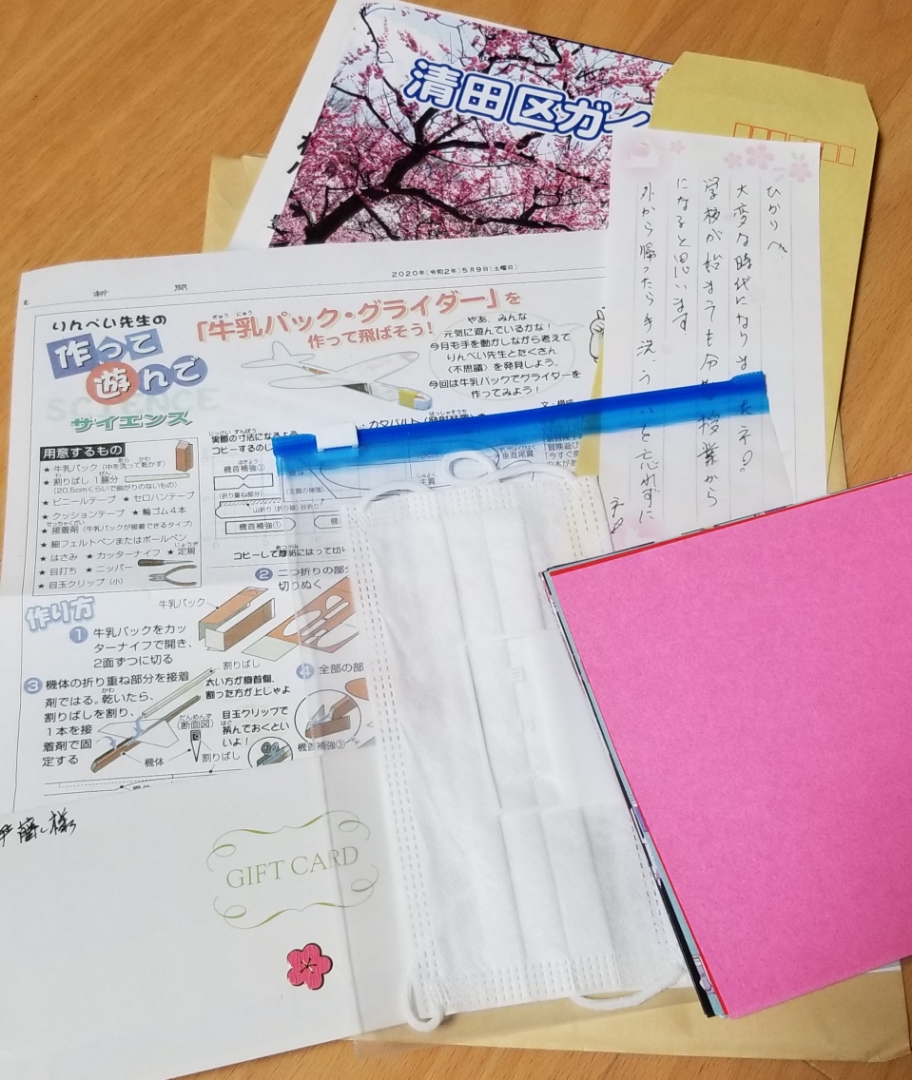 清田区ガ
ひかりへ
大変な時代になりましたネ。
学校が始まっても分散授業から
になると思います
外から帰ったら手洗う
と忘れずに
2020年(令和2年)5月9日(土曜日)
りんぺい先生の
作って
遊んで
サイエンス
「牛乳パック・グライダー」を
作って飛ばそう!
やあ、みんな
元気に遊んでいるかな!
今月も手を動かしながら考えて
りんぺい先生とたくさん
〈不思議〉を発見しよう。
今回は牛乳パックでグライダーを
作ってみよう!
用意するもの
★牛乳パック(中を洗って乾かす)
★割りばし 1膳分
(20.5cmくらいで曲がりのないもの)
★ビニールテープ ★セロハンテープ
★クッションテープ ★輪ゴム4本
★接着剤(牛乳パックが接着できるタイプ)
★細フェルトペンまたはボールペン
★はさみ ★カッターナイフ ★定規
★目打ち ★ニッパー
★目玉クリップ(小)
実際の寸法になるよ
コピーするのし
機首補強②
(折り重ね部分)
機首補強①
コピーして厚紙にはって切り
作り方
牛乳パック
①牛乳パックをカッ
ターナイフで開き、
2面ずつに切る
②二つ折りの部分
切りぬく
③機体の折り重ね部分を接着
剤ではる。乾いたら、
割りばしを割り、
1本を接
着剤で固
定する
割りばし
太い方が機首側、
割った方が上じゃよ
(断面図)
目玉クリップで
挟んでおくとい
いよ!
機体
割りばし
④全部の部
機首補強③
様
GIFT CARD